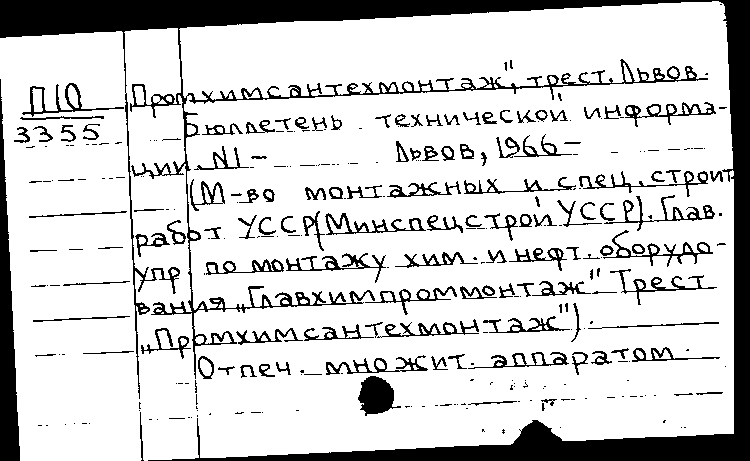 П10
3355
Промхимсантехмонтаж", трест. Львов.
Бюллетень технической информа-
ции. N1 - Львов, 1966 -
(М-во монтажных и спец. строит.
работ УССР (Минспецстрой УССР). Глав.
упр. по монтажу хим. и нефт. оборудо-
вания „Главхимпроммонтаж" Трест
„Промхимсантехмонтаж").
Отпеч. множит. аппаратом.